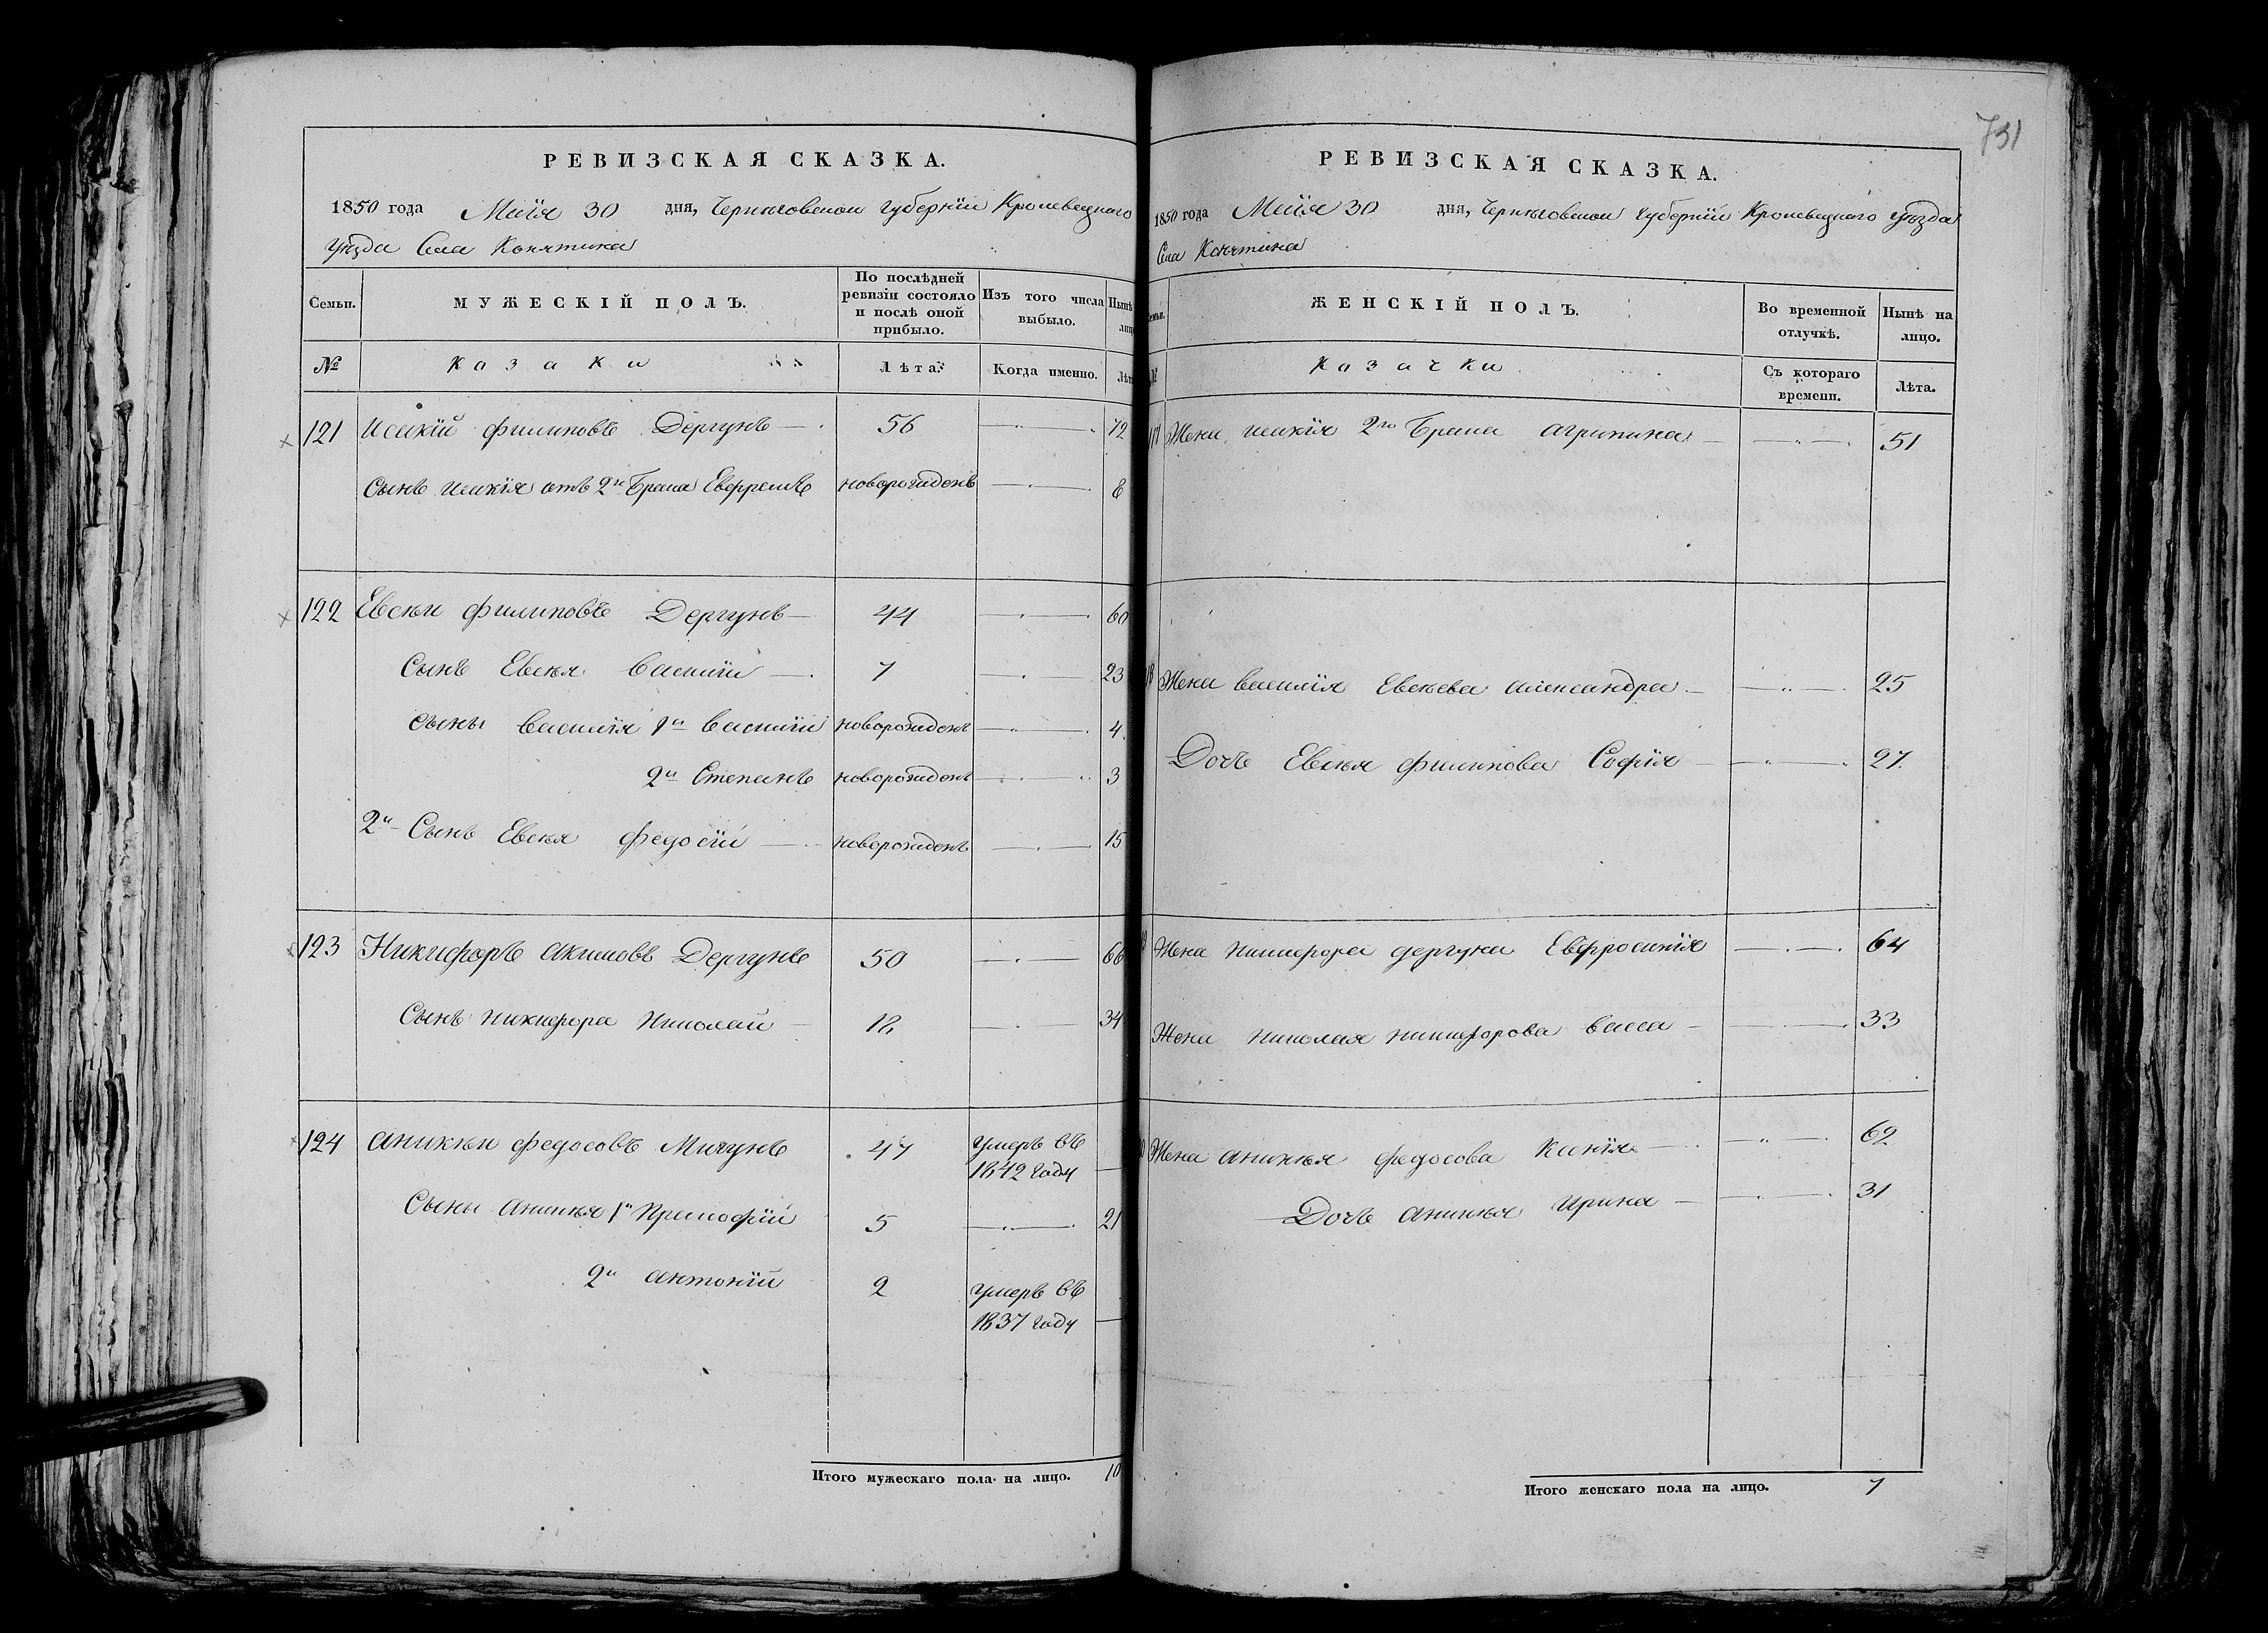 731
РЕВИЗСКАЯ СКАЗКА.
1850 года Маія 30 дня, Черниговской губерніи Кролевецкаго
уѣзда Села Конятина
Семьи. МУЖЕСКІЙ ПОЛЪ. По послѣдней ревизіи состояло и послѣ оной прибыло. Изъ того числа выбыло. Нынѣ
№ Козаки Лѣта. Когда именно. Лѣта
121 Исакій Филиповъ Дергунъ 56 72
Сынъ Исакія отъ 2го Брака Евфремъ новорожденъ 8
122 Евсѣи Филиповъ Дергунъ 44 60
Сынъ Евсѣя Василій 7 23
Сыны Василія 1й Василій новорожденъ 4
2й Степанъ новорожденъ 3
2й Сынъ Евсѣя Федосій новорожденъ 15
123 Никифоръ Акимовъ Дергунъ 50 66
Сынъ Никифора Николай 18 34
124 Аникѣи Федосовъ Мичунъ 47 умеръ въ
1842 году
Сыны Аникѣя 1й Прокофій 5 21
2й Антоній 2 умеръ въ
1837 году
Итого мужескаго пола на лицо. 10
РЕВИЗСКАЯ СКАЗКА.
1850 года Маія 30 дня, Черниговской губерніи Кролевецкаго уѣзда
Села Конятина
ЖЕНСКІЙ ПОЛЪ. Во временной отлучкѣ. Нынѣ на лицо.
№ Козачки Съ котораго времени. Лѣта.
Жена Исакія 2го Брака Агрипина 51
Жена Василія Евсѣева Александра 25
Дочь Евсѣя Филипова Софія 27
Жена Никифора Дергуна Евфросинія 64
Жена Николая Никифорова Васса 33
Жена Аникѣя Федосова Ксенія 62
Дочь Аникѣя Ирина 31
Итого женскаго пола на лицо. 7